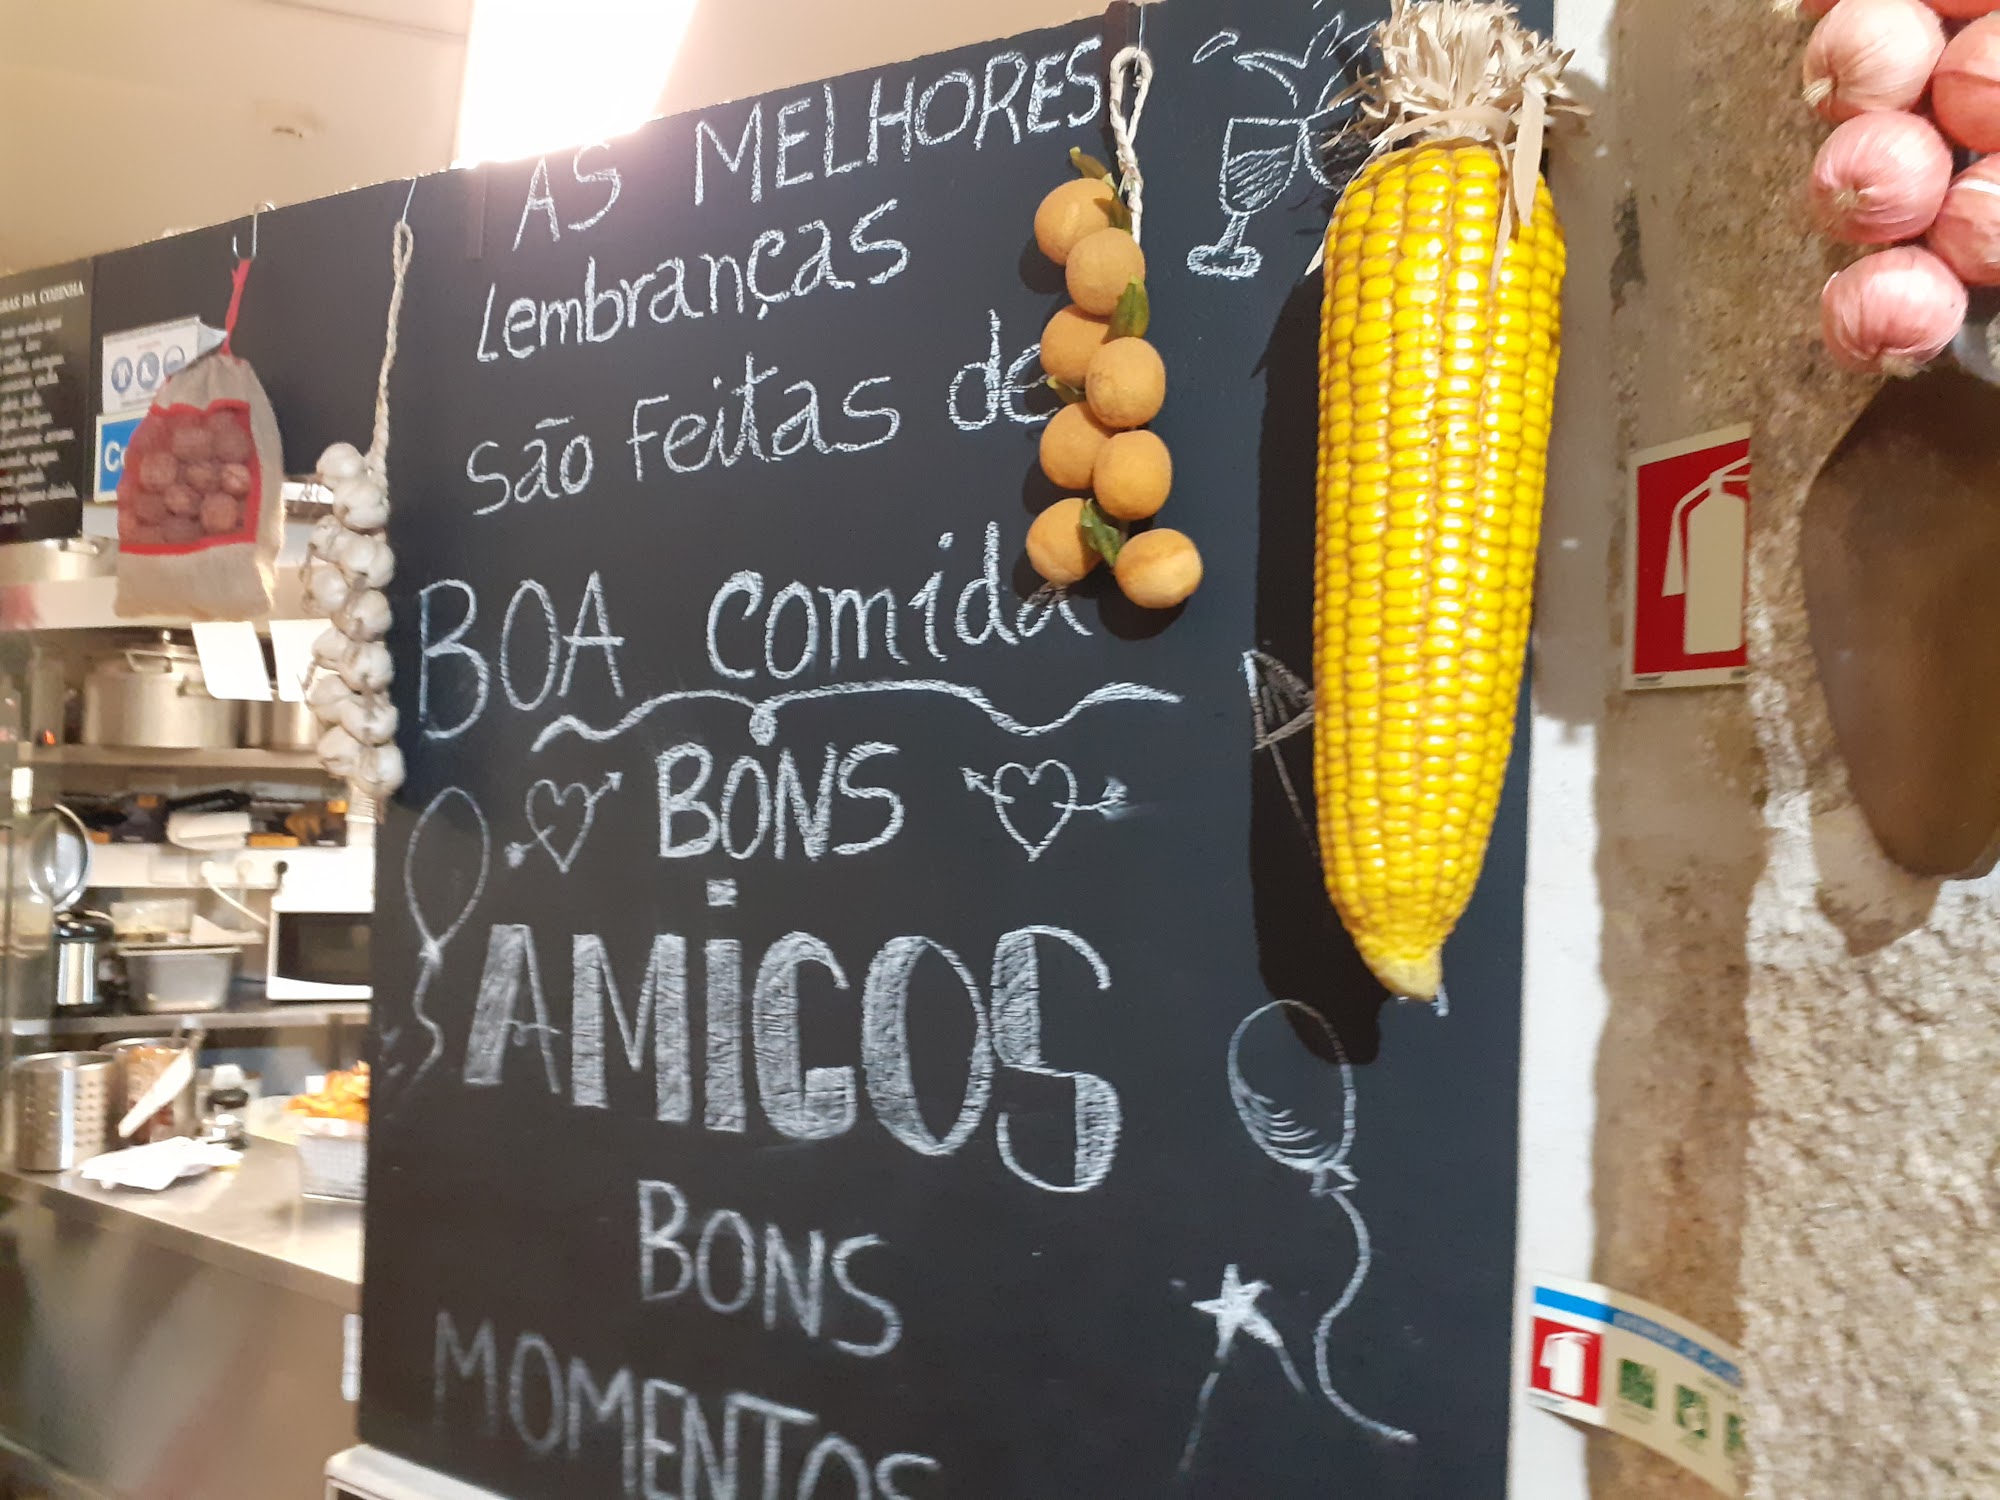 AS MELHORES
Lembranças
São Feitas de
BOA comida
BONS
AMiGOS
BONS
MOMENTOS
DA COZINHA